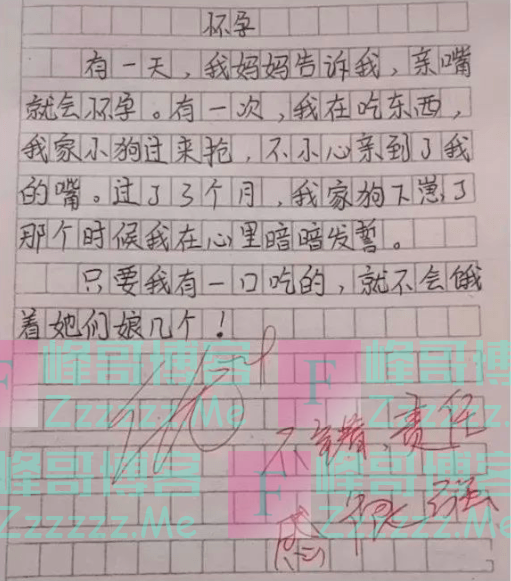 怀孕
有一天，我妈妈告诉我，亲嘴
就会怀孕。有一次，我在吃东西，
我家小狗过来抢，不小心亲到了我
的嘴。过了3个月，我家狗下崽了
那个时候我在心里暗暗发誓。
只要我有一口吃的，就不会饿
着她们娘几个！
不错，责任
感很强
F 峰哥博客
Zzzzzz.Me
F 峰哥博客
Zzzzzz.Me
F 峰哥博客
Zzzzzz.Me
F 峰哥博客
Zzzzzz.Me